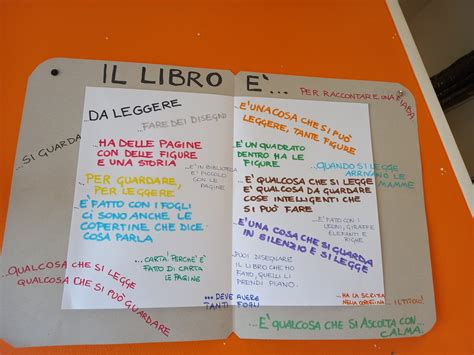 IL LIBRO È...
PER RACCONTARE UNA FIABA
DA LEGGERE
...FARE DEI DISEGNI
...SI GUARDA
...HA DELLE PAGINE
CON DELLE FIGURE
E UNA STORIA
...È IN BIBLIOTECA
È PICCOLO
CON LE
PAGINE
...PER GUARDARE,
PER LEGGERE
...È FATTO CON I FOGLI
CI SONO ANCHE LE
COPERTINE CHE DICE
COSA PARLA
...CARTA PERCHE' È
FATTO DI CARTA
LE PAGINE
...QUALCOSA CHE SI LEGGE
QUALCOSA CHE SI PUÒ GUARDARE
...DEVE AVERE
TANTI FOGLI
...È UNA COSA CHE SI PUÒ
LEGGERE, TANTE FIGURE
...È UN QUADRATO
DENTRO HA LE
FIGURE
...QUANDO SI LEGGE
ARRIVANO LE
MAMME
...È QUALCOSA CHE SI LEGGE
È QUALCOSA DA GUARDARE
COSE INTELLIGENTI CHE
SI PUÒ FARE
...È FATTO CON I
LEONI, GIRAFFE
ELEFANTI E
RIGHE
...È UNA COSA CHE SI GUARDA
IN SILENZIO E SI LEGGE
...PUOI DISEGNARE
IL LIBRO CHE HO
FATO, QUELLI LI
PRENDI PIANO.
...HA LA SCRITTA
NELLA COPERTINA... IL TITOLO!
...È QUALCOSA CHE SI ASCOLTA CON...
CALMA.